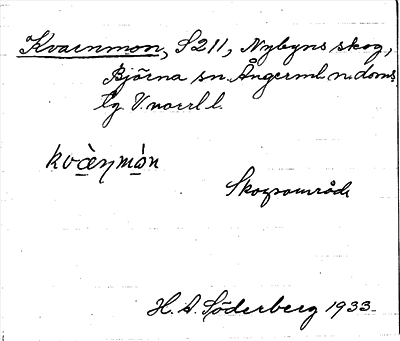 Kvarnmon, S211, Nybyns skog,
Björna sn. Ångerml. n. doms
lg V.norrl l.
kvὰ̱ɳmò̱n
Skogsområde
H. A. Söderberg 1933.